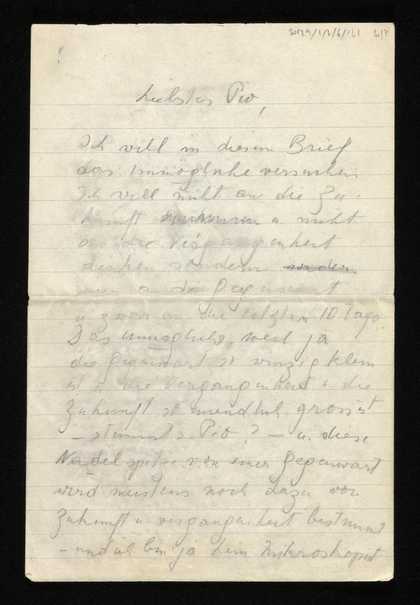 Liebster Pio,
Ich will in diesem Brief
das Unmögliche versuchen.
Ich will nicht an die Zu-
kunft u nicht
an die Vergangenheit
denken sondern
nur an die Gegenwart
u zwar an die letzten 10 Tage.
Das Unmögliche, weil ja
die Gegenwart so winzig klein
ist u die Vergangenheit u die
Zukunft so unendlich gross ist
– stimmts Pio? – u. diese
Nadelspitze von einer Gegenwart
wird meistens noch dazu von
Zukunft u Vergangenheit bestimmt
– und ich bin ja kein Mikroskopist